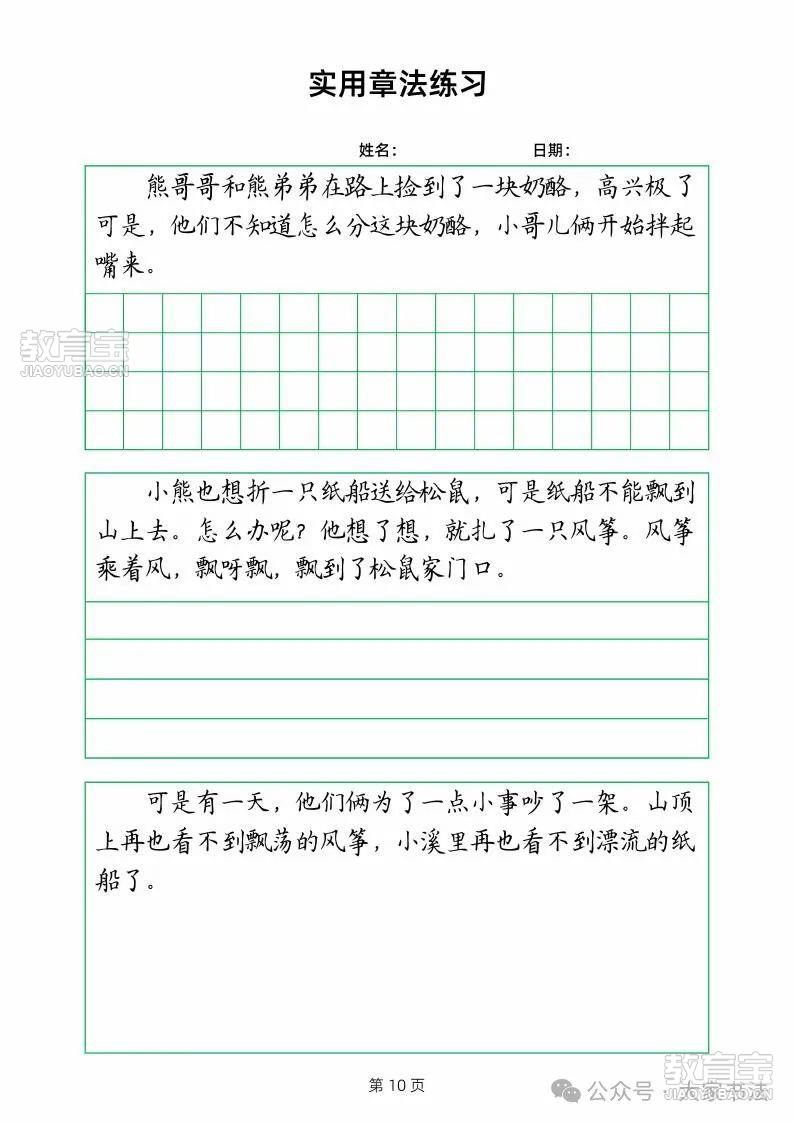 实用章法练习
姓名：
日期：
熊哥哥和熊弟弟在路上捡到了一块奶酪，高兴极了
可是，他们不知道怎么分这块奶酪，小哥儿俩开始拌起
嘴来。
教育宝
JIAOYUBAO.CN
小熊也想折一只纸船送给松鼠，可是纸船不能飘到
山上去。怎么办呢？他想了想，就扎了一只风筝。风筝
乘着风，飘呀飘，飘到了松鼠家门口。
可是有一天，他们俩为了一点小事吵了一架。山顶
上再也看不到飘荡的风筝，小溪里再也看不到漂流的纸
船了。
第 10 页
教育宝
JIAOYUBAO.CN
公众号 · 大家书法